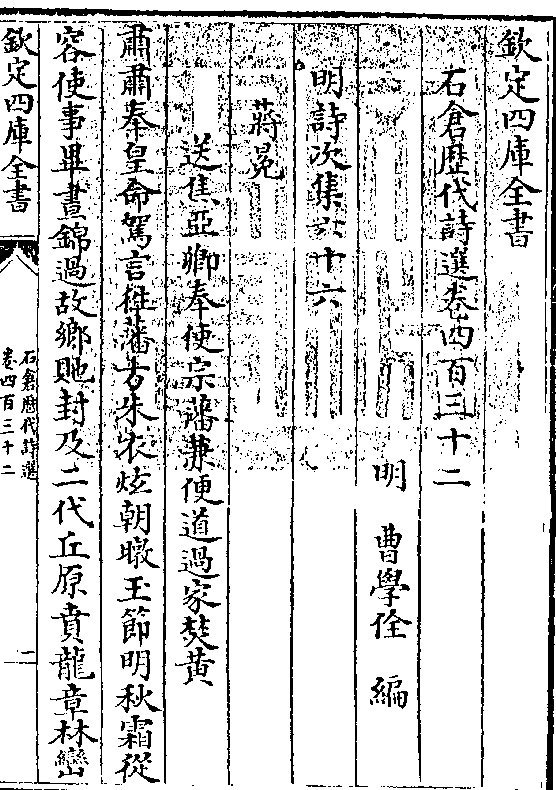 欽定四庫全書
石倉歴代詩選卷四百三十二
明 曹學佺 編
明詩次集六十六
蔣冕
送焦亞卿奉使宗藩兼便道過家焚黄
肅肅奉皇命駕言徃藩方朱衣炫朝暾玉節明秋霜從
容使事畢晝錦過故鄉貤封及二代丘原賁龍章林巒
欽定四庫全書
石倉歴代詩選
卷四百三十二